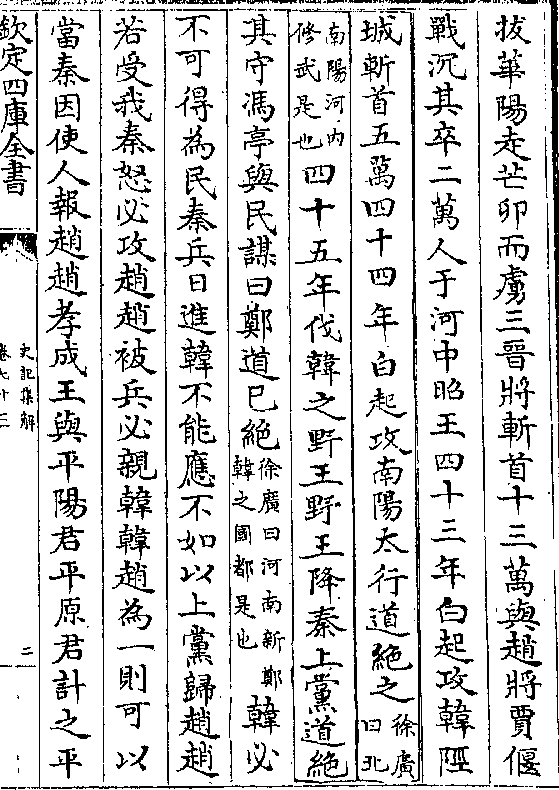 拔華陽走芒卯而虜三晉將斬首十三萬與趙將賈偃
戰沉其卒二萬人于河中昭王四十三年白起攻韓陘
城斬首五萬四十四年白起攻南陽太行道絶之徐廣曰北
南陽河内修武是也四十五年伐韓之野王野王降秦上黨道絶
其守馮亭與民謀曰鄭道已絶徐廣曰河南新鄭韓之國都是也韓必
不可得為民秦兵日進韓不能應不如以上黨歸趙趙
若受我秦怒必攻趙趙被兵必親韓韓趙為一則可以
當秦因使人報趙趙孝成王與平陽君平原君計之平
欽定四庫全書
史記集解
卷七十三
二